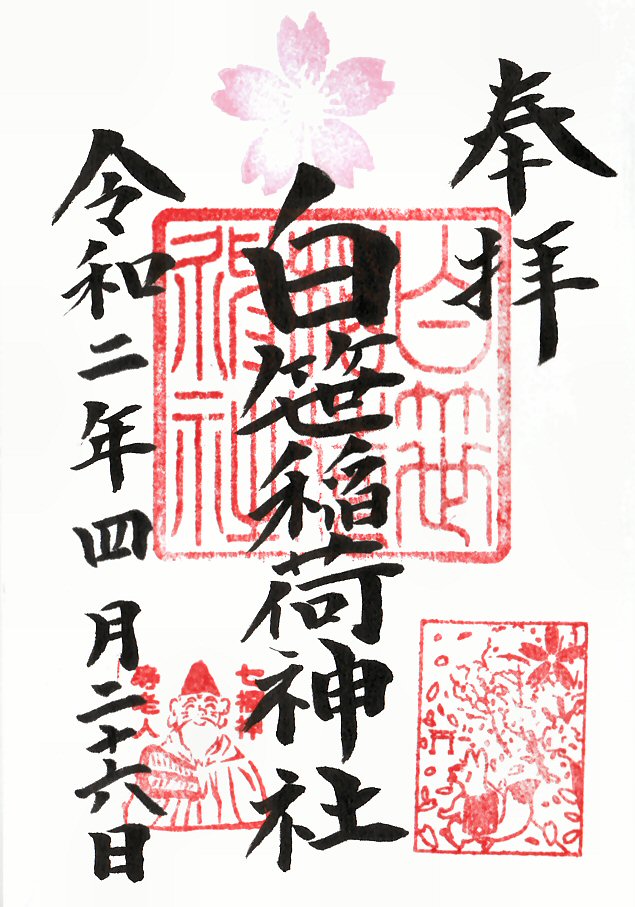 奉拝
白笹稲荷神社
令和二年四月二十六日
白笹稲荷神社
七福神
寿老人